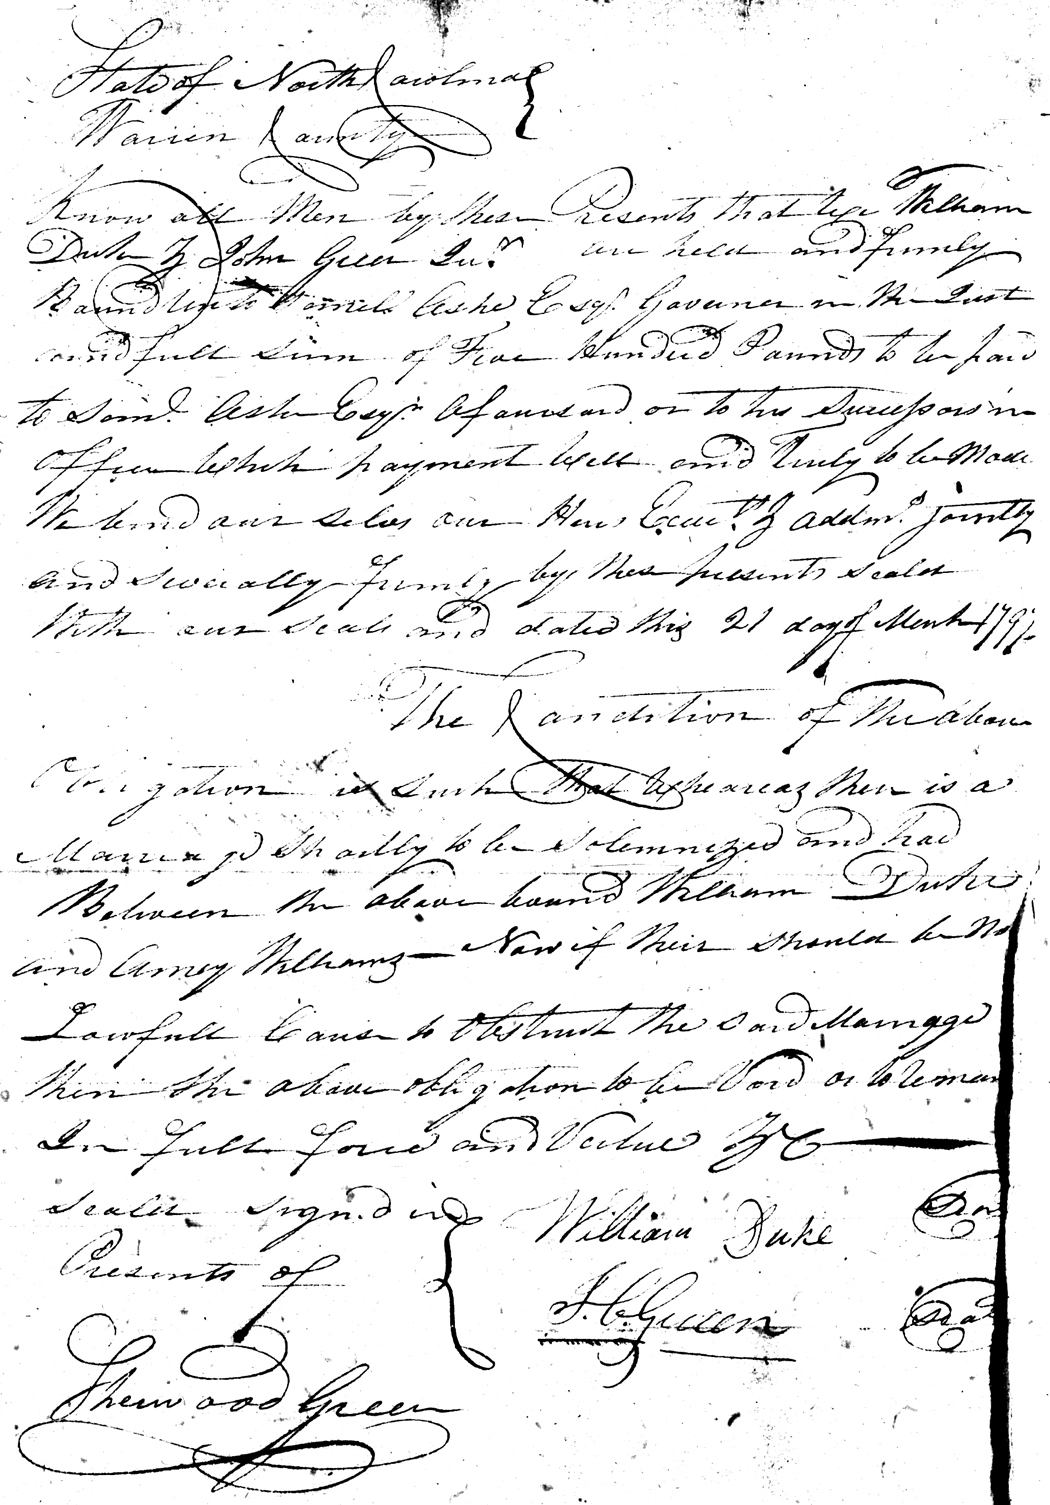 State of North Carolina
Warren County
Know all Men by these Presents that we William
Duke & John Green Junr are held and firmly
Bound unto Samuel Ashe Esqr. Governer in the Just
and full Sum of Five Hundred Pounds to be paid
to Saml. Ashe Esqr. Aforesaid or to his Successors in
Office Which payment Well and Truly to be Made
We bind our selves our Heirs Exeutrs & Addmrs jointly
and severally firmly by these presents sealed
With our seals and dated this 21 day of March 1797.
The Condition of the above
Obligation is Such that Whereas there is a
Marriage Shortly to be Solemnized and had
Between the above bound William Duke
and Amey Williams Now if their should be No
Lawfull Cause to Obstruct the said Marriage
then the above obligation to be Void or to remain
In full force and Vertue &C
Sealed Signed in
Presents of
William Duke Seal
Green Seal
Sherwood Green